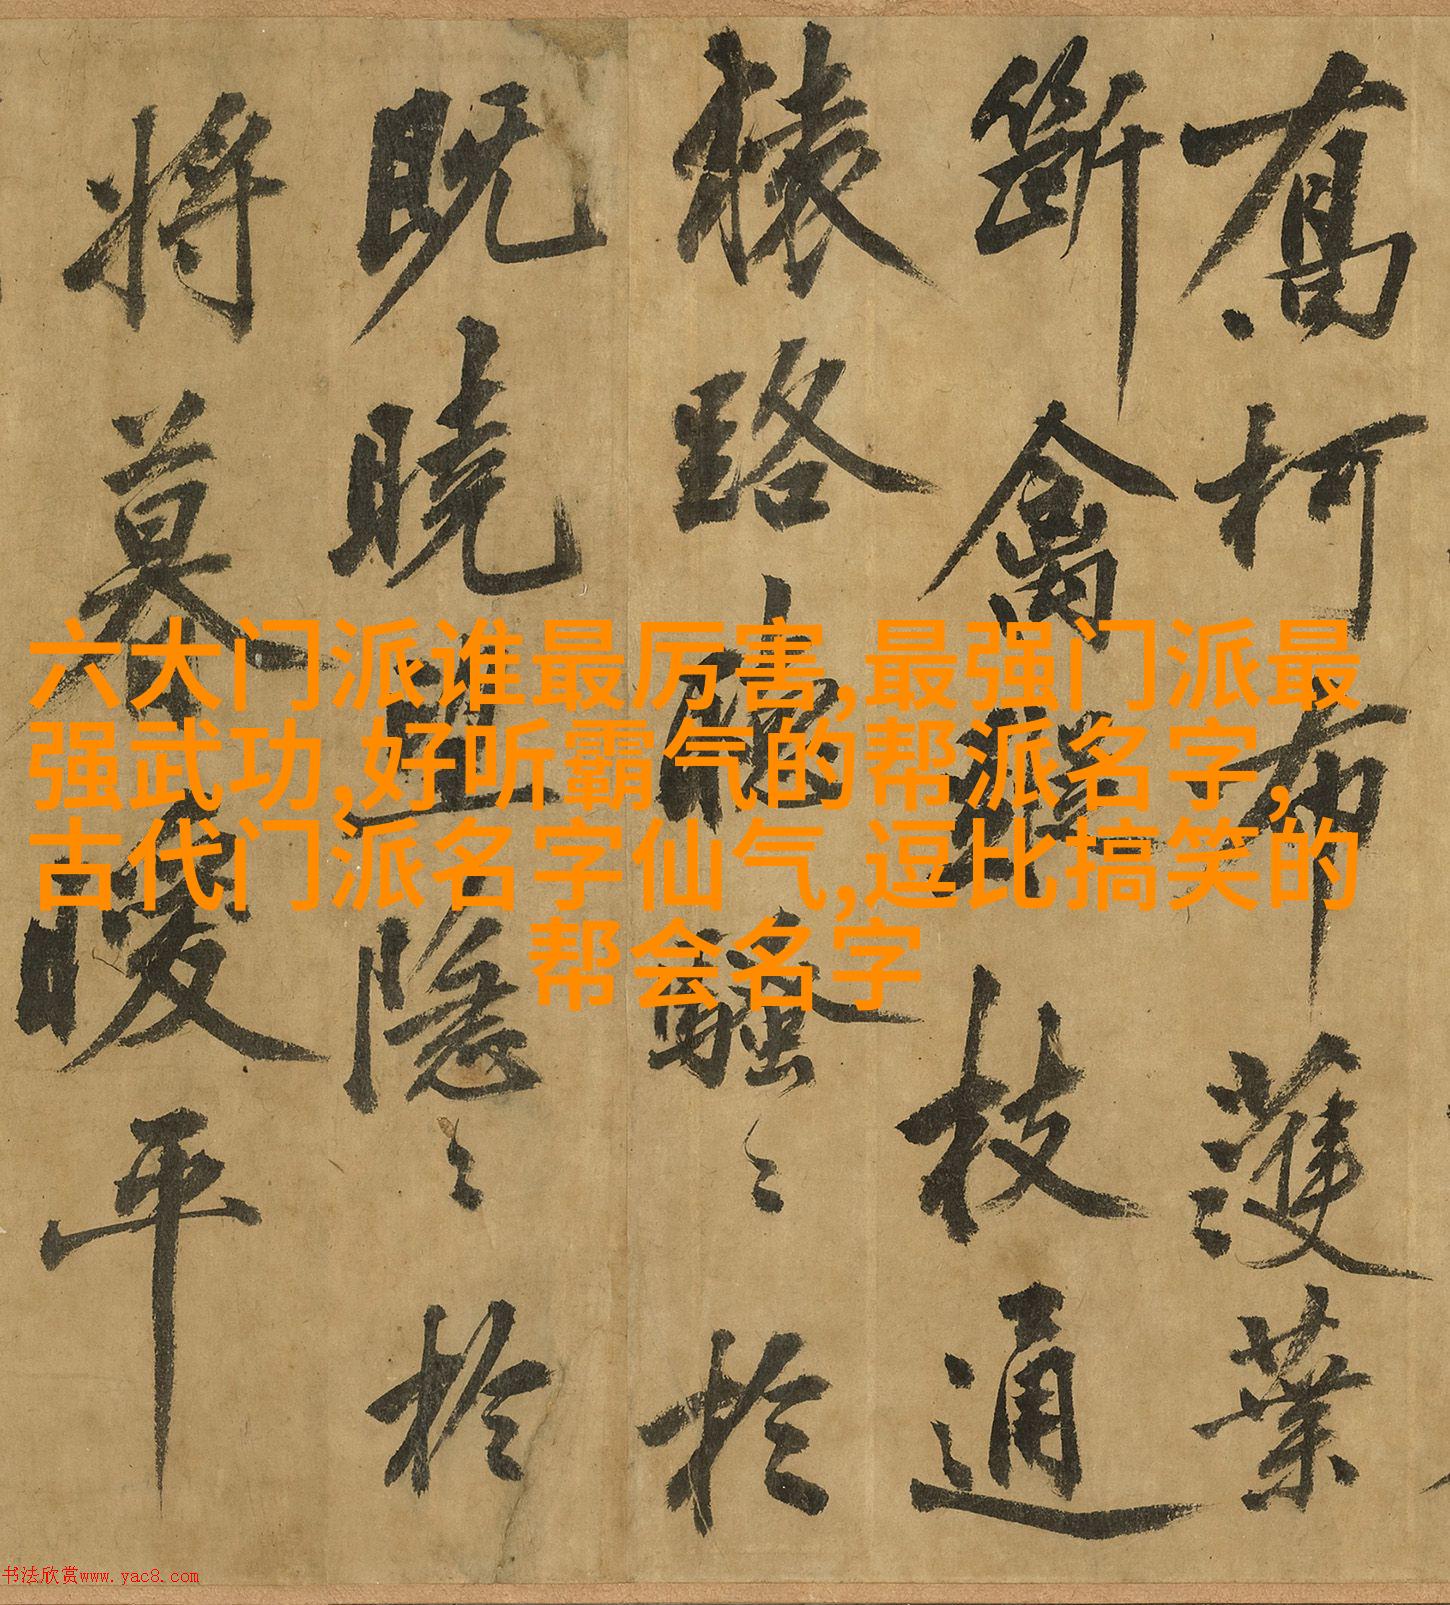 喬柯布濩葉
斷禽枝通
猿路騷〻於
既曉隱〻於
將暮曖平
六大门派谁最厉害,最强门派最
强武功,好听霸气的帮派名字,
古代门派名字仙气,逗比搞笑的
帮会名字
书法欣赏www.yac8.com